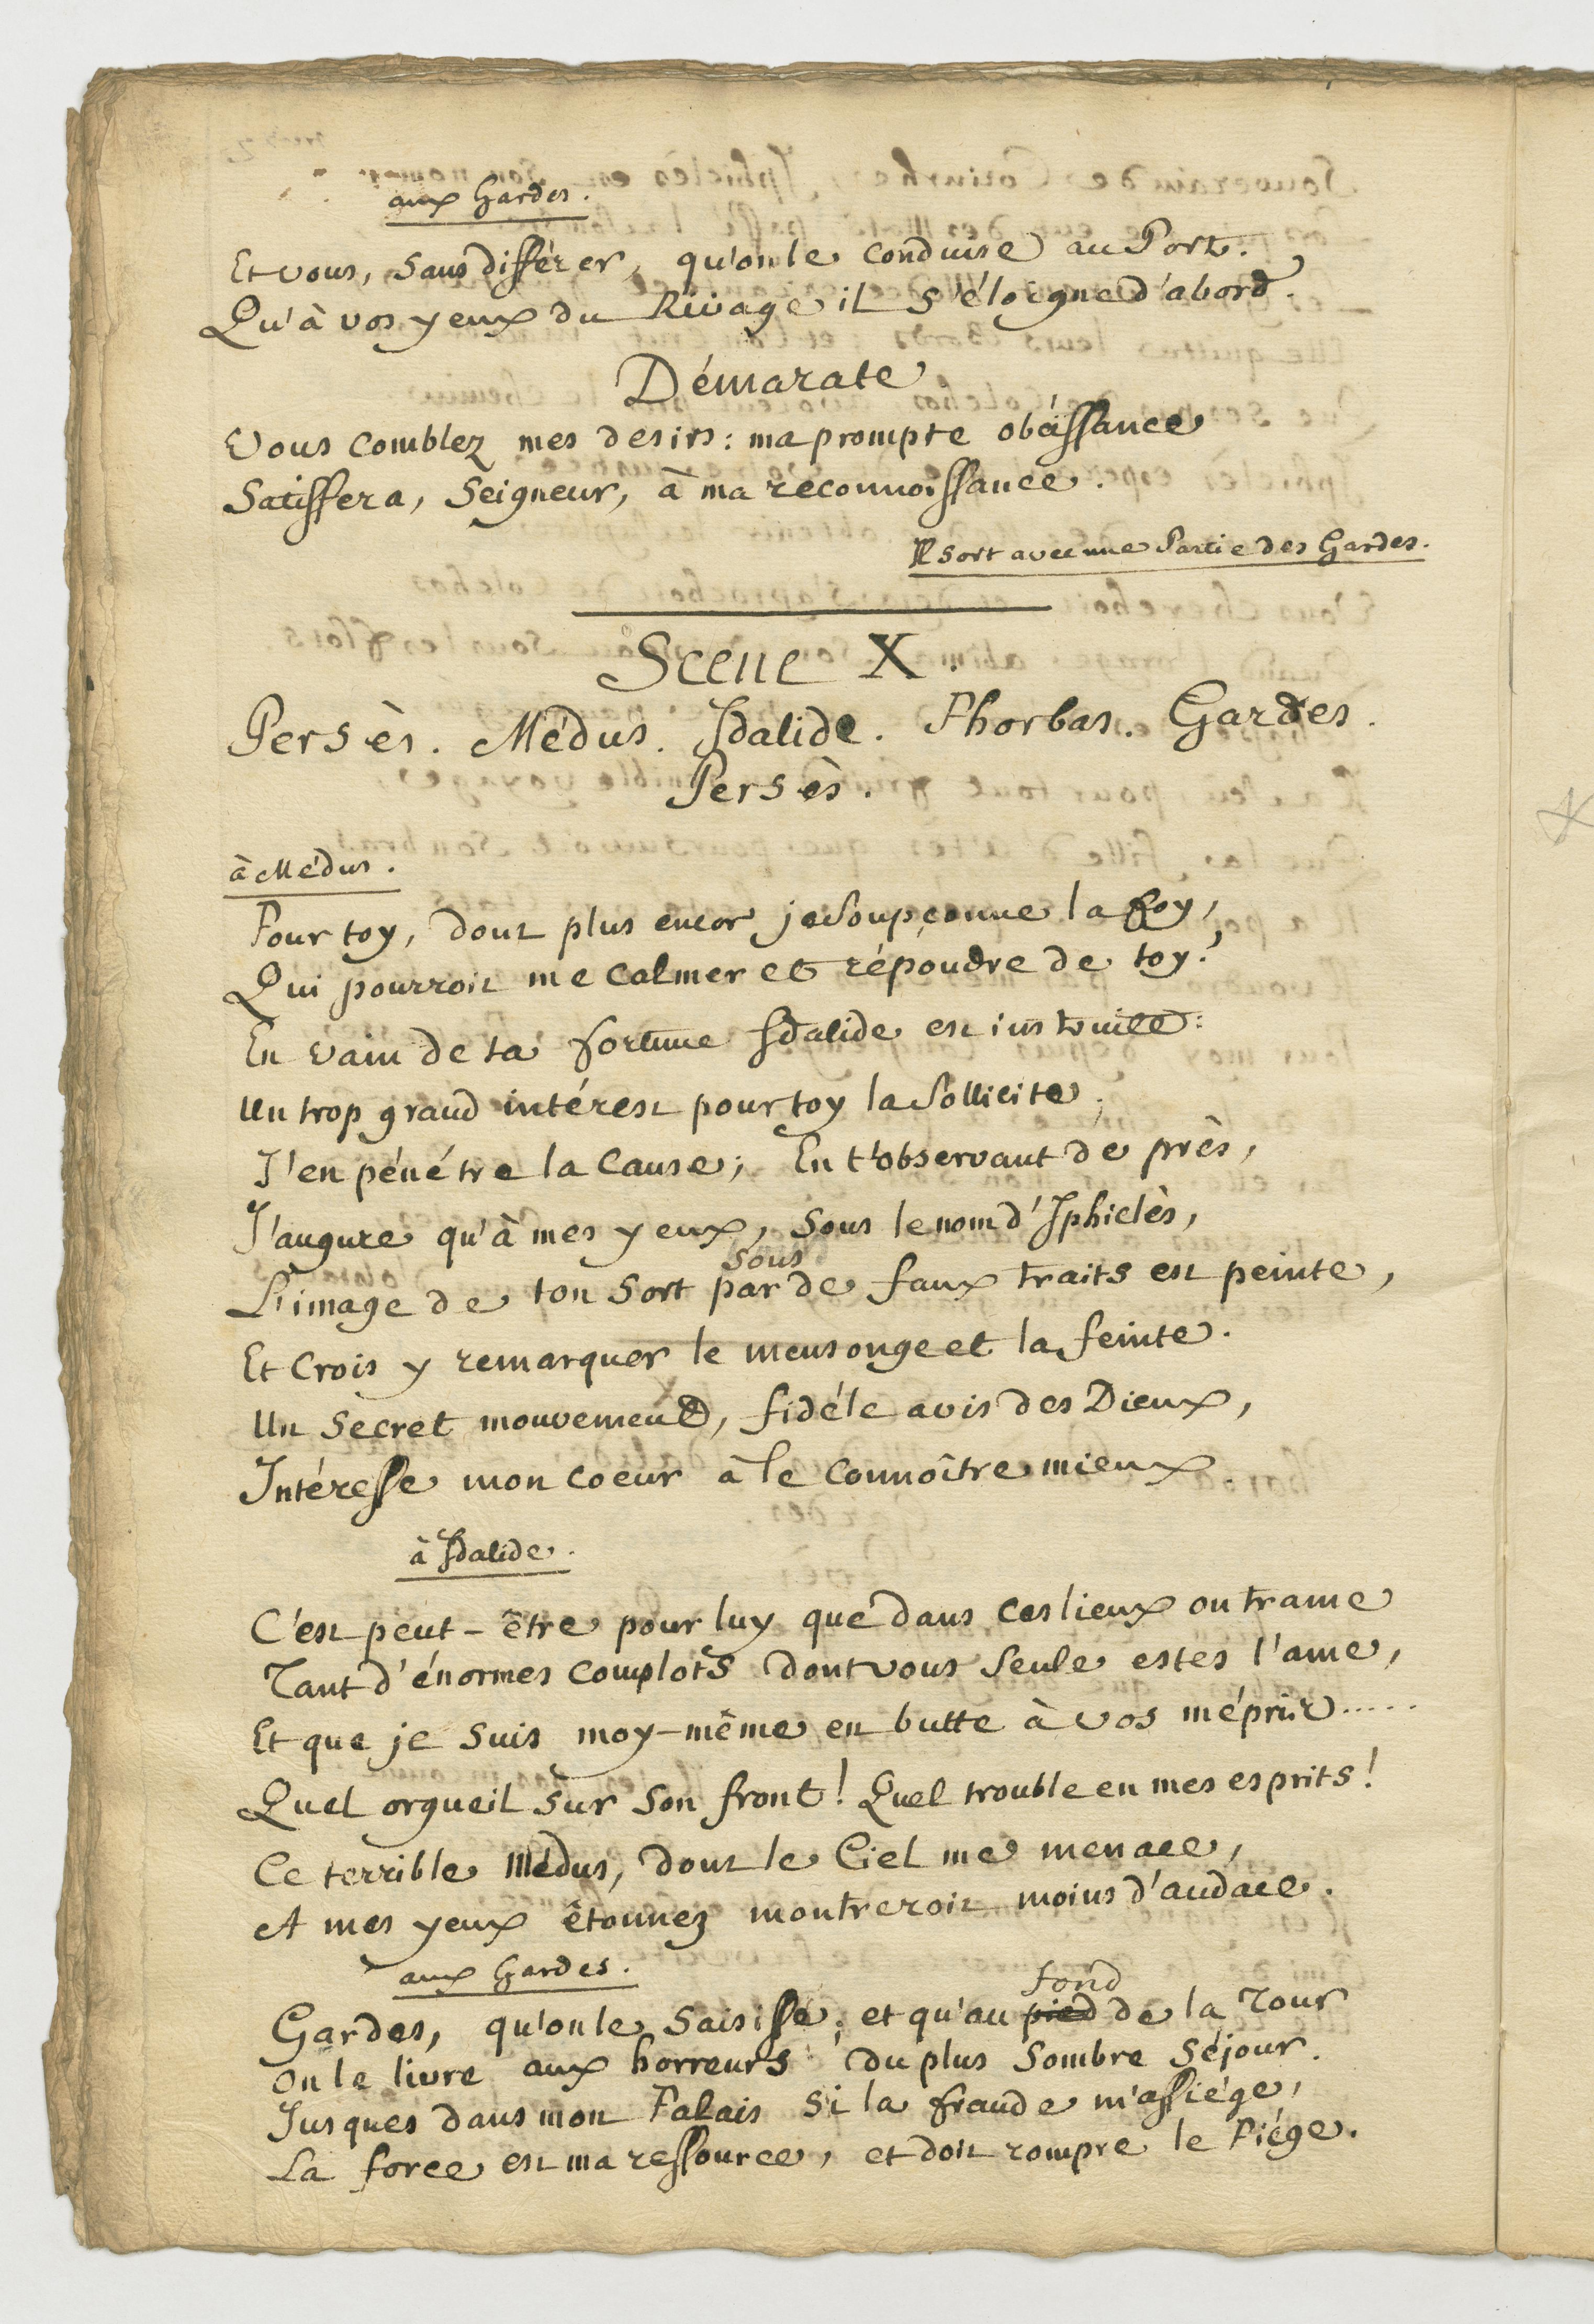 aux Gardes.
Et vous, sans différer, qu'on le conduise au Port.
Qu'à vos yeux du Rivage il s'éloigne d'abord.
Démarate
Vous comblez mes desirs: ma prompte obéissance
Satisfera, Seigneur, à ma reconnoissance.
Il sort avec une Partie des Gardes.
Scene X.
Persès. Médus. Idalide. Phorbas. Gardes.
Persès.
à Médus.
Pour toy, dont plus encor je soupçonne la foy,
Qui pourroit me calmer et répondre de toy?
En vain de ta fortune Idalide est instruite:
Un trop grand intérest pour toy la sollicite;
J'en pénétre la cause; En t'observant de près,
J'augure qu'à mes yeux, sous le nom d'Iphiclès,
sous
L'image de ton sort par de faux traits est peinte,
Et crois y remarquer le mensonge et la feinte.
Un secret mouvement, fidéle avis des Dieux,
Intéresse mon coeur à le connoître mieux.
à Idalide.
C'est peut-être pour luy que dans ces lieux on trame
Tant d'énormes complots dont vous seule estes l'ame,
Et que je suis moy-même en butte à vos mépris.....
Quel orgueil sur son front! Quel trouble en mes esprits!
Ce terrible Médus, dont le Ciel me menace,
A mes yeux étonnez montreroit moins d'audace.
aux Gardes.
fond
Gardes, qu'on le saisisse; et qu'au pied de la Tour
On le livre aux horreurs du plus sombre séjour.
Jusques dans mon Palais si la fraude m'assiége,
La force est ma ressource, et doit rompre le Piége.